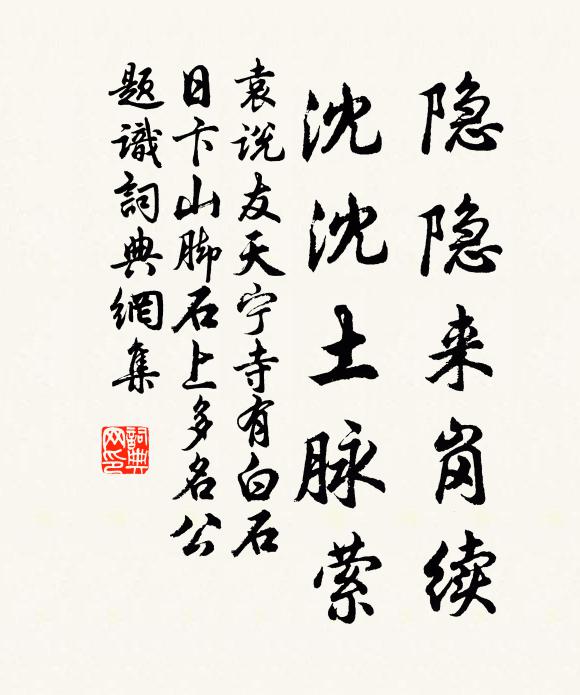 隐隐来岗续
沈沈土脉萦
袁说友天宁寺有白石
日卞山脚石上多名公
题識詞典網集
詞典
网印